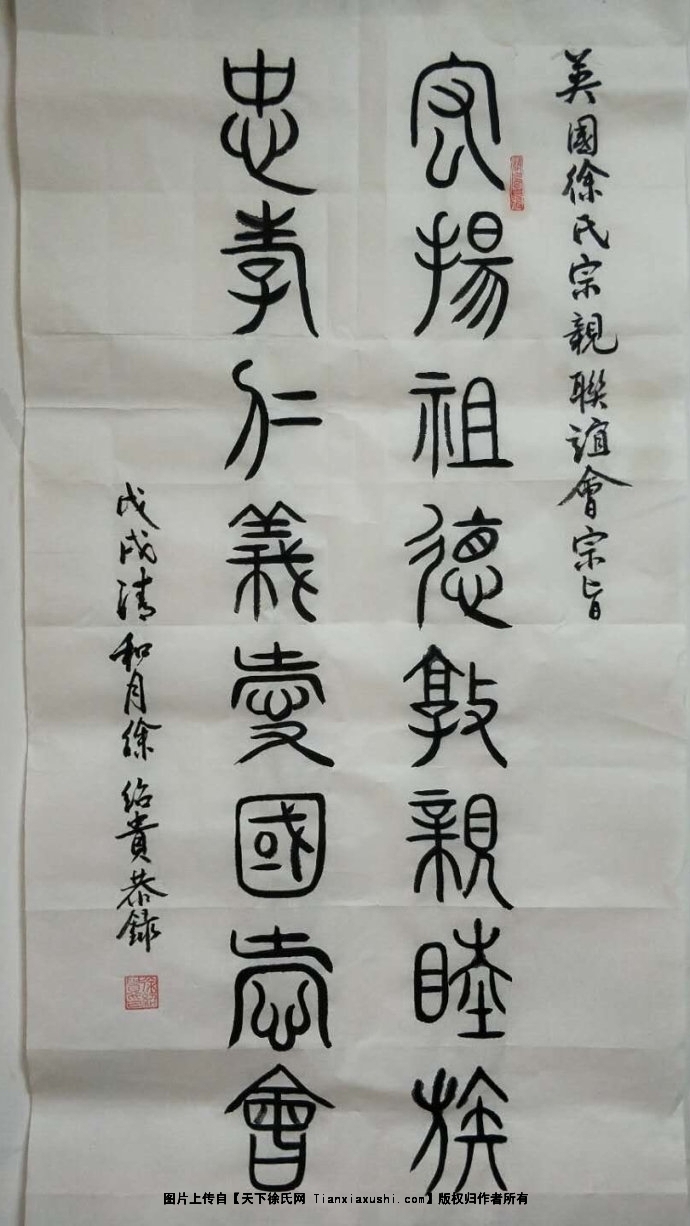 英國徐氏宗親聯誼會宗旨
宏揚祖德敦親睦族
忠孝仁義愛國愛會
戊戌清和月徐紹貴恭錄
图片上传自【天下徐氏网 Tianxiaxushi.com】版权归作者所有